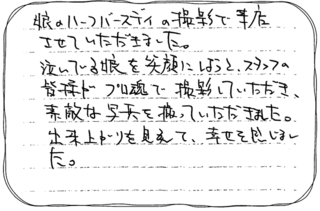 娘のハーフバースデイの撮影で来店
させていただきました。
泣いている娘を笑顔にしようと、スタッフの
皆様がプロ魂で撮影していただき、
素敵な写真を撮っていただきました。
出来上がりを見て、幸せを感じまし
た。